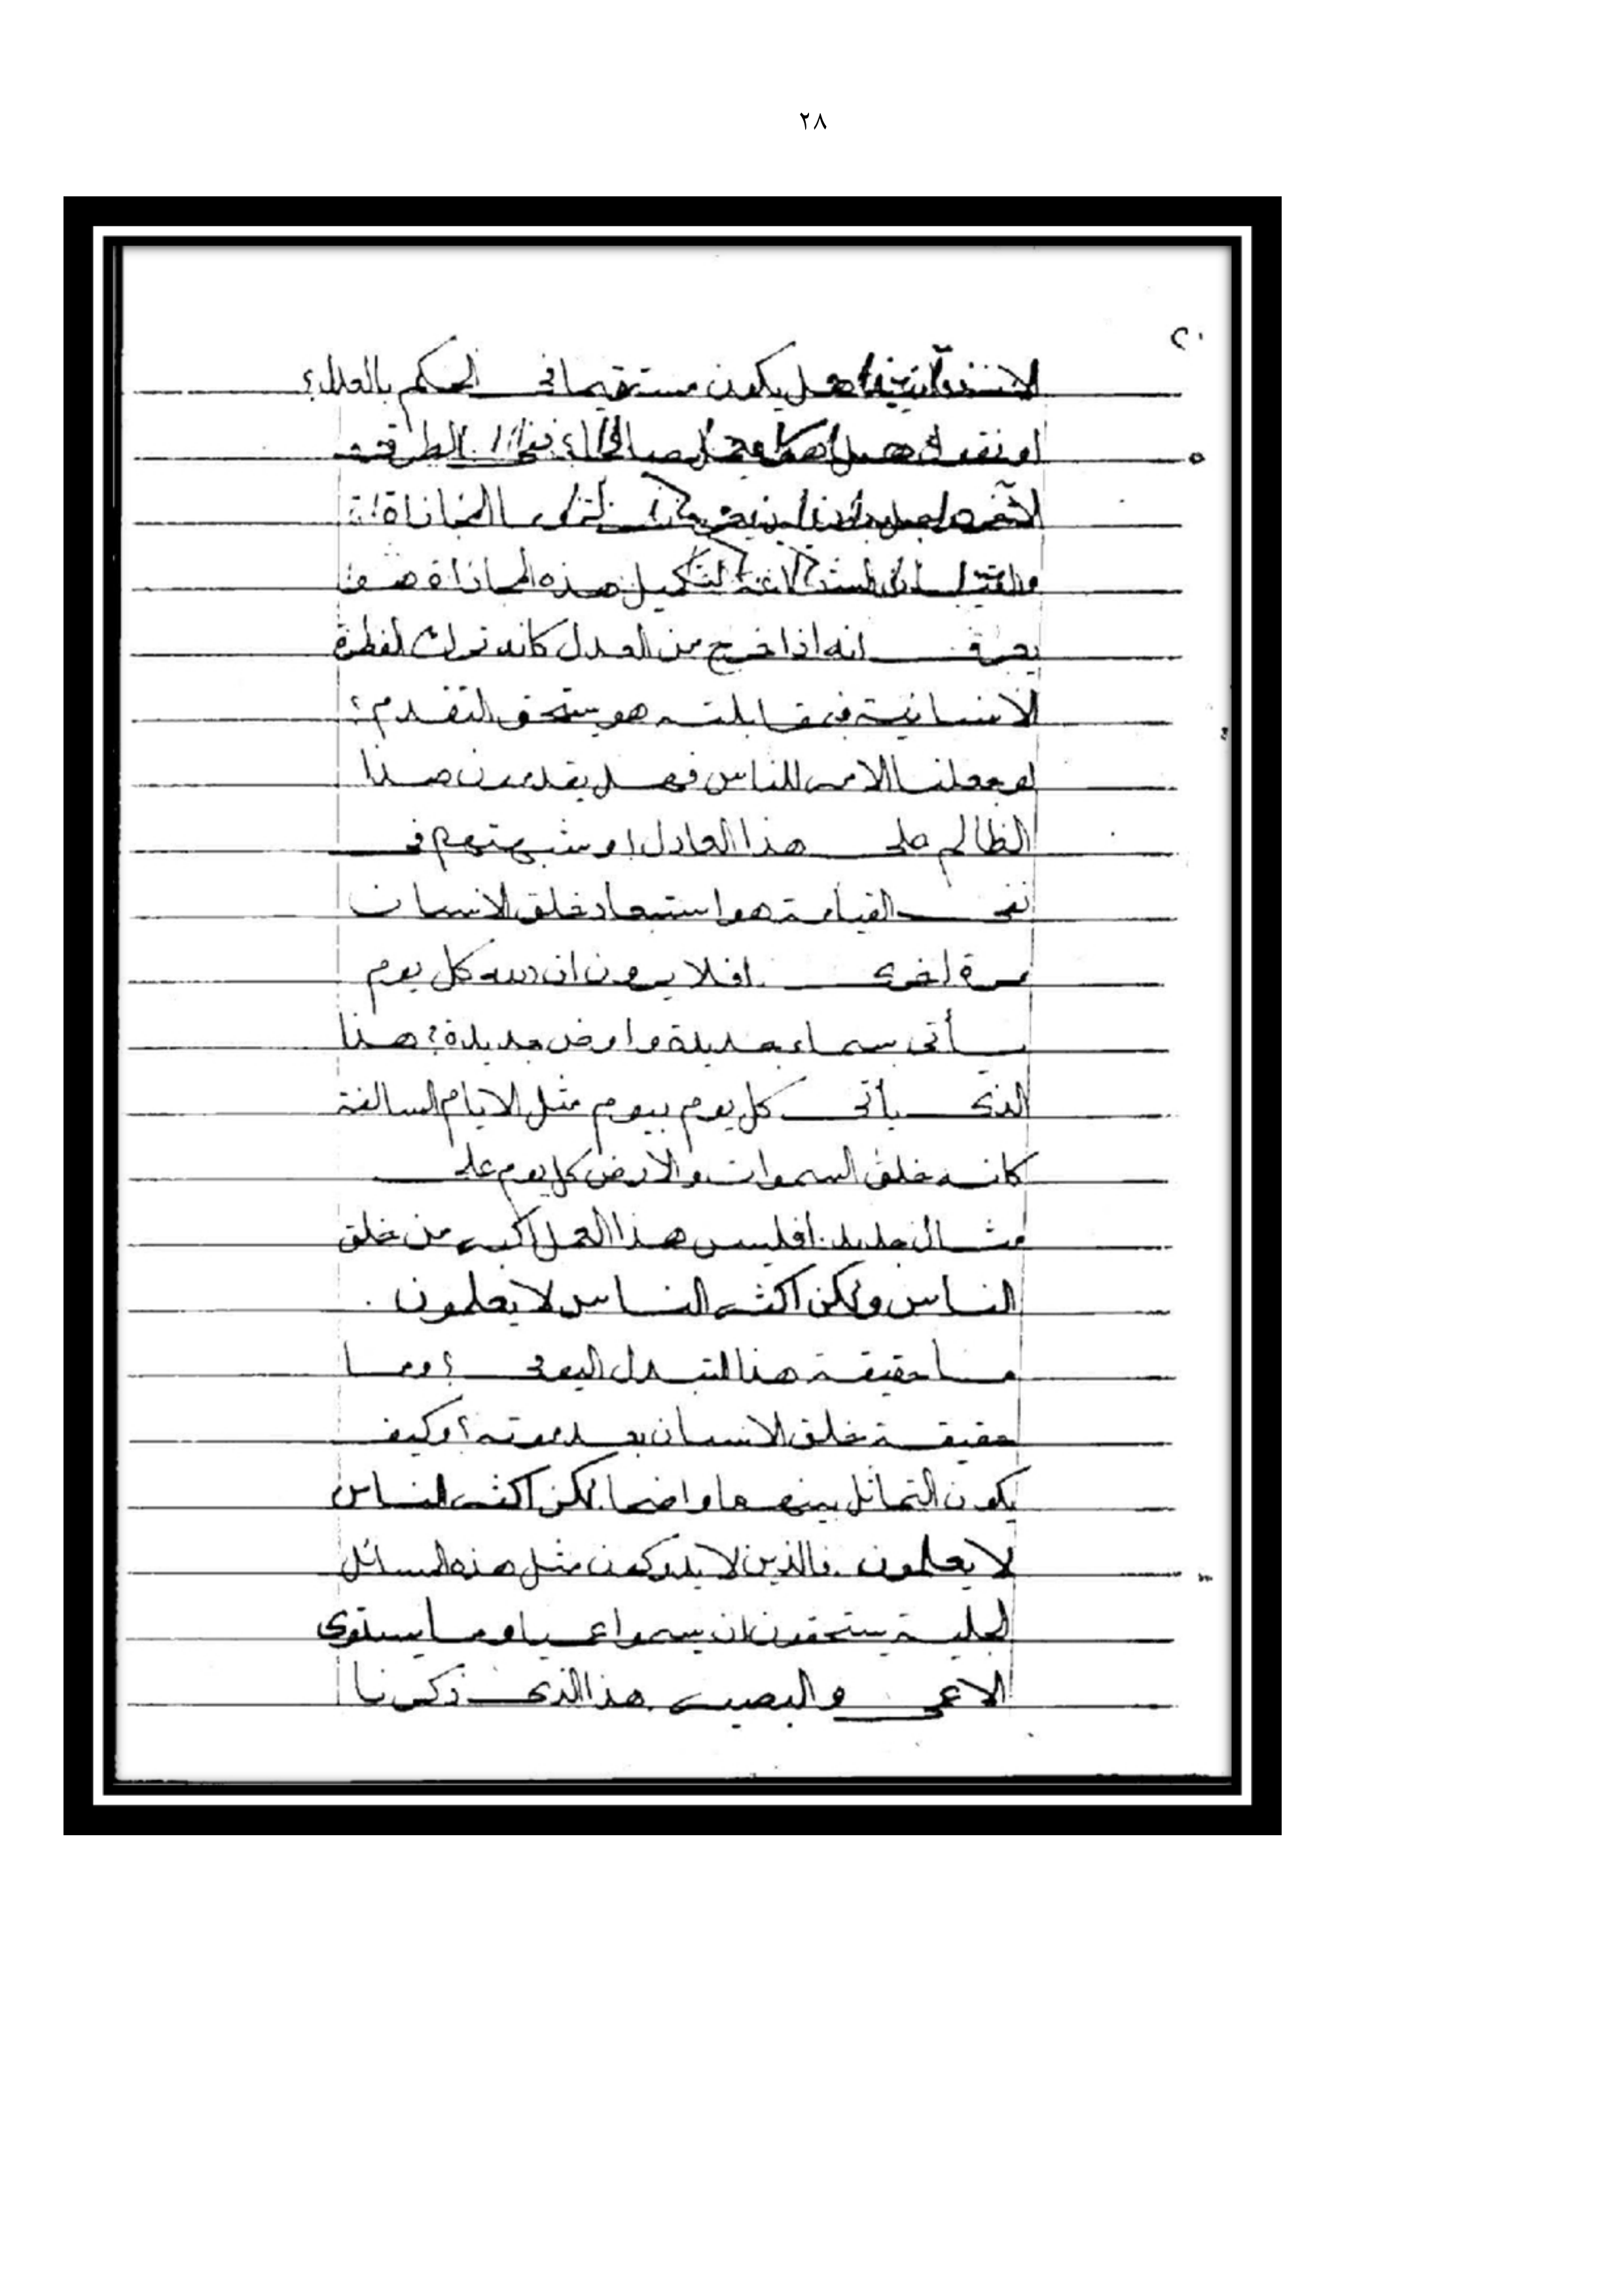 ٢٨
٢٠
هل يكون مستقيما في الحكم بالعدل؟
او نقول هل
المجازاة
هذه المجازاة
يعرف انه اذا خرج من العدل كانه ترك الفطرة
الانسانية فبمقابلته هو يستحق التقدم؟
لو جعلنا الامر للناس فهل يقدمون هذا
الظالم على هذا العادل او شبهتهم في
نفي القيامة هو استبعاد خلق الانسان
مرة اخرى افلا يرون ان الله كل يوم
يأتى سماء جديدة وارض جديدة؟ هذا
الذى يأتى كل يوم بيوم مثل الايام السالفة
كانه خلق السموات والارض كل يوم على
مثال جديد. افليس هذا العمل اكبر من خلق
الناس ولكن اكثر الناس لا يعلمون .
ما حقيقة هذا التبدل اليومى ؟ وما
حقيقة خلق الانسان بعد موته؟ وكيف
يكون التماثل بينهما واضحا. لكن اكثر الناس
لا يعلمون. فالذين لا يدركون مثل هذه المسائل
الجلية يستحقون ان يسموا عميا وما يستوى
الاعمى والبصير. هذا الذى ذكرنا